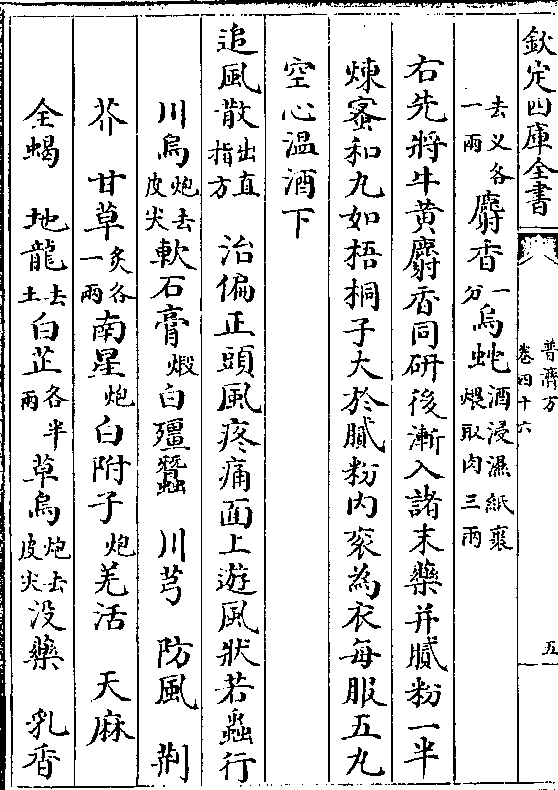 欽定四庫全書
普濟方
卷四十六
五
去义各一兩麝香一分烏蛇酒浸濕紙裹煨取肉三兩
右先將牛黄麝香同研後漸入諸末藥并膩粉一半
煉蜜和丸如梧桐子大於膩粉内衮為衣每服五丸
空心温酒下
追風散出直指方 治偏正頭風疼痛面上遊風狀若蟲行
川烏炮去皮尖軟石膏煅白殭蠶 川芎 防風 荆
芥 甘草炙各一兩南星炮白附子炮羌活 天麻
全蝎 地龍去土白芷各半兩草烏炮去皮尖没藥 乳香